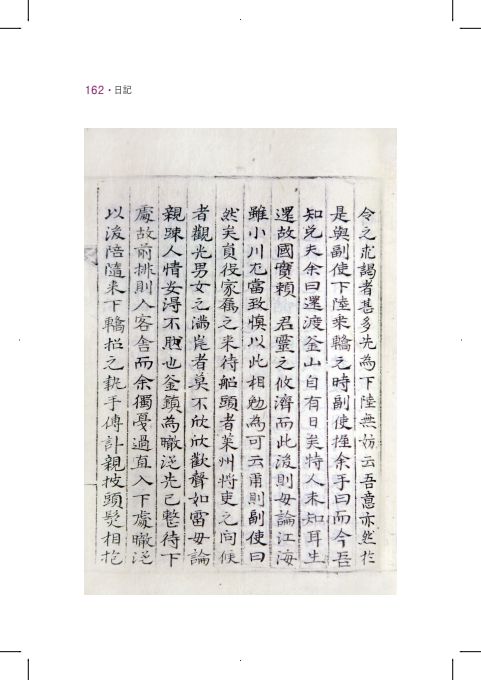 162 · 日記
令之求謁者甚多先為下陸無妨云吾意亦然於
是與副使下陸乘轎之時副使握余手曰而今吾
知免夫余曰還渡釜山自有日矣特人未知耳生
還故國實賴 君靈之攸濟而此後則毋論江海
雖小川尤當致慎以此相勉為可云甫則副使曰
然矣員役家屬之來待船頭者萊州將吏之問候
者觀光男女之滿岸者莫不欣欣歡聲如雷毋論
親踈人情安得不然也釜鎮為暾從先已整待下
處故前排則入客舍而余獨憂過直入下處暾從
以後陪隨來下轎招之執手傳訃親披頭髮相抱